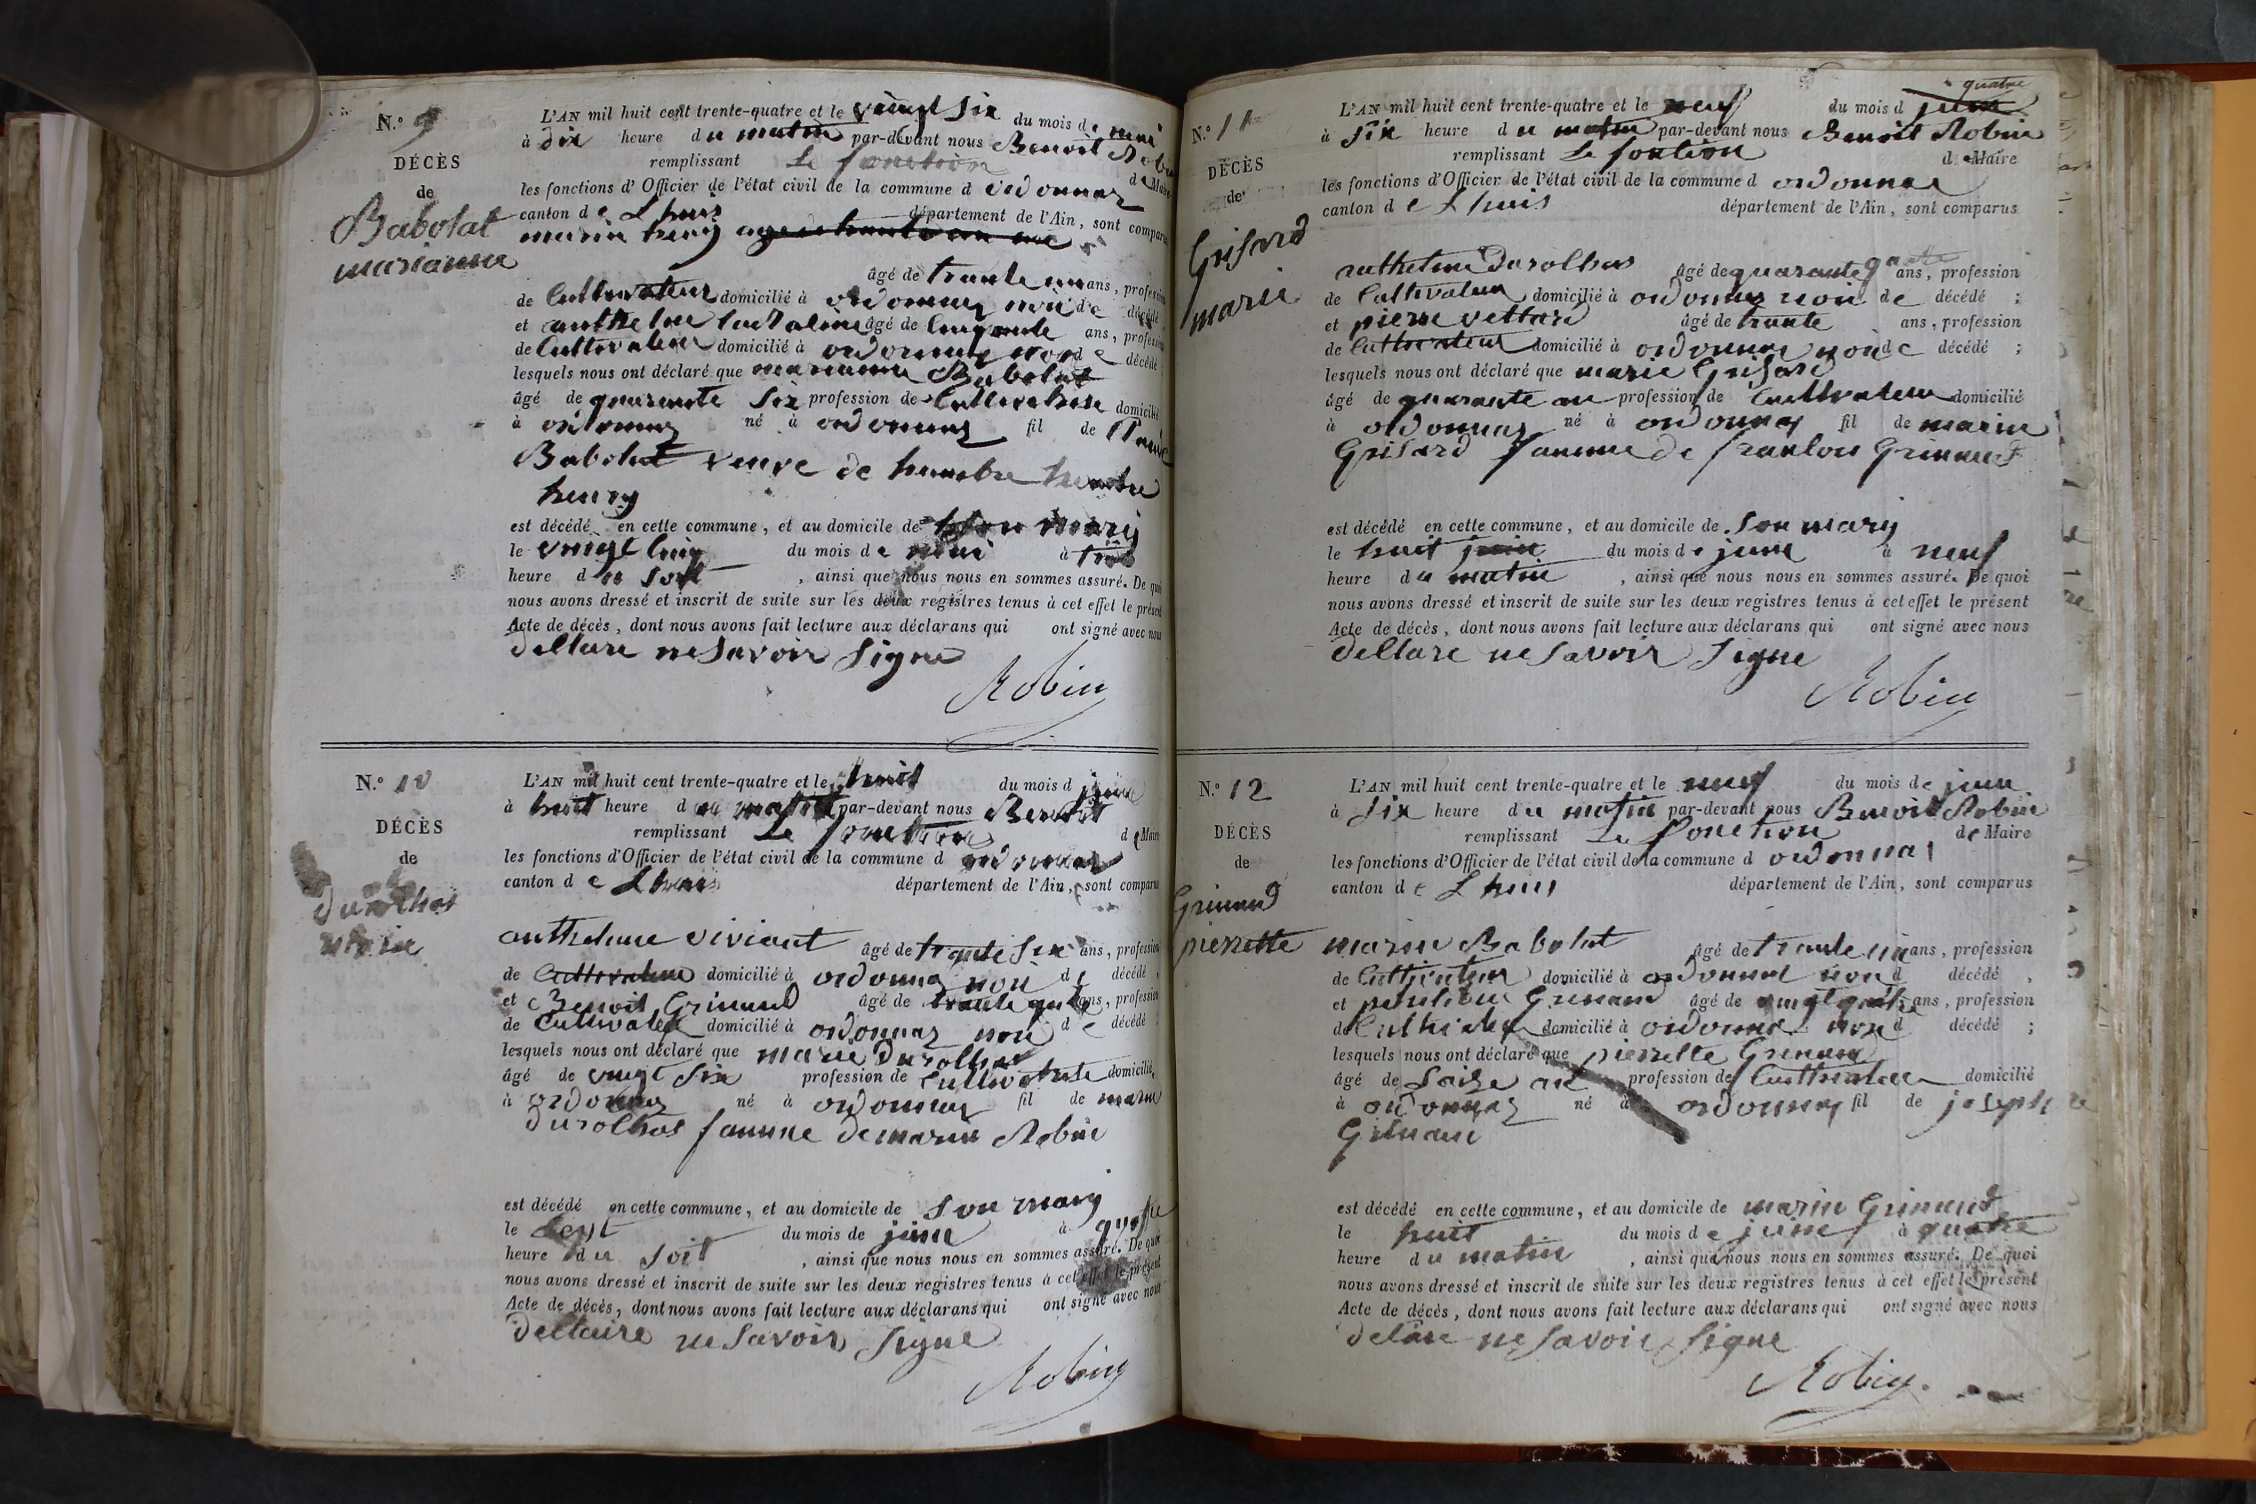 N.° 9
DÉCÈS
de
Babolat
marianne
L'AN mil huit cent trente-quatre et le vingt six du mois de mai
à dix heure du matin par-devant nous Benoit Robin
remplissant Le fonction de Maire
les fonctions d'Officier de l'état civil de la commune d ordonnaz
canton de Lhuis département de l'Ain, sont comparus
marin henry
âgé de trante un ans, profession
de Cultivateur domicilié à ordonnaz noin de décédé
et anthelme âgé de cinquante ans, profession
de Cultivateur domicilié à ordonnaz non de décédé
lesquels nous ont déclaré que marianne Babolat
âgé de quarante six profession de Cultivatrise domicilié
à ordonnaz né à ordonnaz fil de
Babolat veuve de humbre humbre
henry
est décédé en cette commune, et au domicile de son mary
le vingt cinq du mois de mai à trois
heure du soit, ainsi que nous nous en sommes assuré. De quoi
nous avons dressé et inscrit de suite sur les deux registres tenus à cet effet le présent
Acte de décès, dont nous avons fait lecture aux déclarans qui ont signé avec nous
dellare ne savoir signe
Robin
N.° 10
DÉCÈS
de
durolhos
marie
L'AN mil huit cent trente-quatre et le huit du mois d juine
à huit heure du matin par-devant nous Benoit
remplissant Le fonction de Maire
les fonctions d'Officier de l'état civil de la commune d ordonnaz
canton de Lhuis département de l'Ain, sont comparus
anthelme viviant âgé de trante six ans, profession
de Cultivateur domicilié à ordonnaz non de décédé
et Benoit Grinand âgé de trante quatre ans, profession
de Cultivateur domicilié à ordonnaz non de décédé
lesquels nous ont déclaré que marie durolhos
âgé de vingt six profession de Cultivatrise domicilié
à ordonnaz né à ordonnaz fil de marin
durolhos famme de marin Robin
est décédé en cette commune, et au domicile de son mary
le sept du mois de juine à quatre
heure du soit, ainsi que nous nous en sommes assuré. De quoi
nous avons dressé et inscrit de suite sur les deux registres tenus à cet effet le présent
Acte de décès, dont nous avons fait lecture aux déclarans qui ont signé avec nous
dellaire ne savoir signe
Robin
N.° 11
DÉCÈS
de
Grisard
marie
quatre
L'AN mil huit cent trente-quatre et le neuf du mois d juin
à six heure du matin par-devant nous Benoit Robin
remplissant Le fontion de Maire
les fonctions d'Officier de l'état civil de la commune d ordonnaz
canton de Lhuis département de l'Ain, sont comparus
anthelme durolhos âgé de quarante quatre ans, profession
de Cultivateur domicilié à ordonnaz non de décédé;
et pierre vettard âgé de trante ans, profession
de Cultivateur domicilié à ordonnaz non de décédé;
lesquels nous ont déclaré que marie Grisard
âgé de quarante an profession de Cultivateur domicilié
à ordonnaz né à ordonnaz fil de marin
Grisard famme de franlois Grinand
est décédé en cette commune, et au domicile de son mary
le huit juin du mois de juine à neuf
heure du matin, ainsi que nous nous en sommes assuré. De quoi
nous avons dressé et inscrit de suite sur les deux registres tenus à cet effet le présent
Acte de décès, dont nous avons fait lecture aux déclarans qui ont signé avec nous
dellare ne savoir signe
Robin
N.° 12
DÉCÈS
de
Grinand
pierrette
L'AN mil huit cent trente-quatre et le neuf du mois de juin
à six heure du matin par-devant nous Benoit Robin
remplissant Le fonction de Maire
les fonctions d'Officier de l'état civil de la commune d ordonnaz
canton de Lhuis département de l'Ain, sont comparus
marin Babolat âgé de trante un ans, profession
de Cultivateur domicilié à ordonnaz non d décédé,
et Grinand âgé de vingt quatre ans, profession
de Cultivateur domicilié à ordonnaz non d décédé;
lesquels nous ont déclaré que pierrette Grinand
âgé de saise an profession de Cultivateur domicilié
à ordonnaz né à ordonnaz fil de joseph
Grinand
est décédé en cette commune, et au domicile de marin Grinand
le huit du mois de juine à quatre
heure du matin, ainsi que nous nous en sommes assuré. De quoi
nous avons dressé et inscrit de suite sur les deux registres tenus à cet effet le présent
Acte de décès, dont nous avons fait lecture aux déclarans qui ont signé avec nous
delare ne savoir signe
Robin